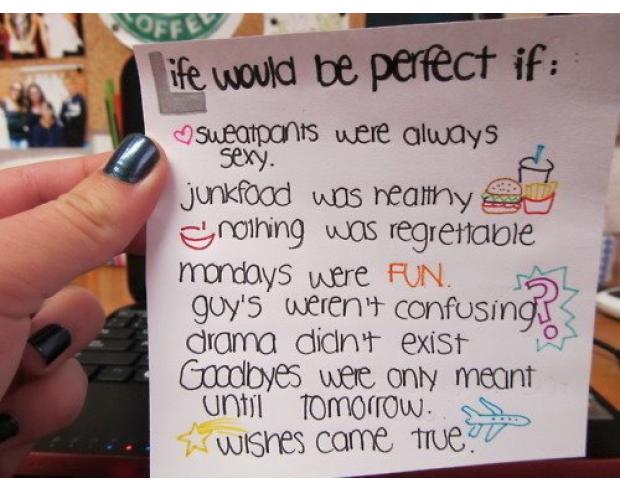 OFFEE
Life would be perfect if:
sweatpants were always
sexy.
junkfood was healthy
nothing was regrettable
mondays were FUN.
guy's weren't confusing
drama didn't exist
Goodbyes were only meant
until tomorrow.
wishes came true.